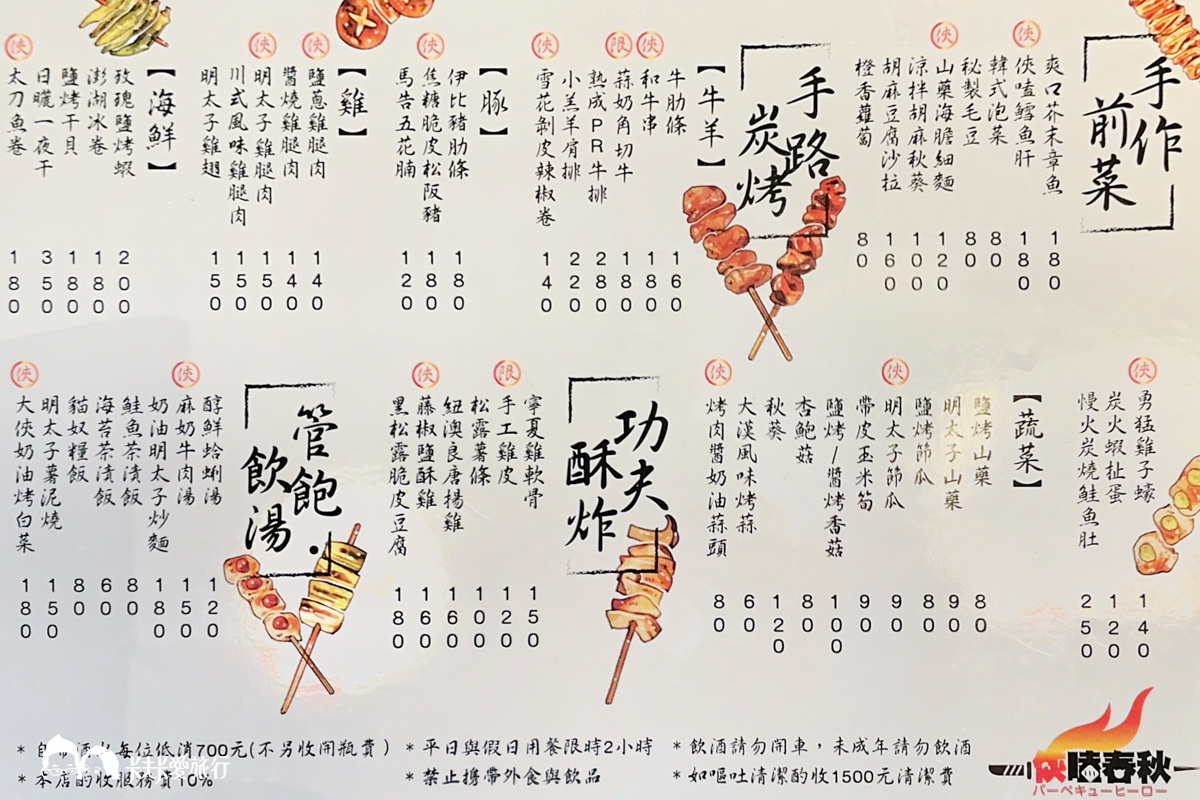 手作
前菜
俠
爽口芥末章魚 180
俠嗑鱈魚肝 180
韓式泡菜 80
秘製毛豆 80
俠
山藥海膽細麵 120
涼拌胡麻秋葵 100
胡麻豆腐沙拉 160
橙香蘿蔔 80
手路
炭烤
【牛羊】
牛肋條 160
俠
和牛串 180
限
蒜奶角切牛 180
熟成PR牛排 280
小羔羊肩排 220
俠
雪花剝皮辣椒卷 140
【豚】
伊比豬肋條 180
俠
焦糖脆皮松阪豬 180
馬告五花腩 120
【雞】
俠
鹽蔥雞腿肉 140
醬燒雞腿肉 140
俠
明太子雞腿肉 150
川式風味雞腿肉 150
明太子雞翅 150
【海鮮】
玫瑰鹽烤蝦 200
澎湖冰卷 180
鹽烤干貝 180
日曬一夜干 350
俠
太刀魚卷 180
俠
勇猛雞子蠔 140
炭火蝦扯蛋 120
慢火炭燒鮭魚肚 250
【蔬菜】
鹽烤山藥 80
明太子山藥 90
鹽烤節瓜 80
俠
明太子節瓜 90
帶皮玉米筍 90
鹽烤/醬烤香菇 100
杏鮑菇 80
秋葵 120
大漢風味烤蒜 60
俠
烤肉醬奶油蒜頭 80
功夫
酥炸
寧夏雞軟骨 150
限
手工雞皮 120
松露薯條 100
紐澳良唐揚雞 160
俠
藤椒鹽酥雞 160
黑松露脆皮豆腐 180
管飽.
飲湯
醇鮮蛤蜊湯 120
俠
麻奶牛肉湯 150
奶油明太子炒麵 180
鮭魚茶漬飯 80
海苔茶漬飯 60
貓奴糧飯 80
明太子薯泥燒 150
俠
大俠奶油烤白菜 180
* 自帶酒水每位低消700元(不另收開瓶費)
* 本店酌收服務費10%
* 平日與假日用餐限時2小時
* 禁止攜帶外食與飲品
* 飲酒請勿開車，未成年請勿飲酒
* 如嘔吐清潔酌收1500元清潔費
俠嗑春秋
バーベキューヒーロー